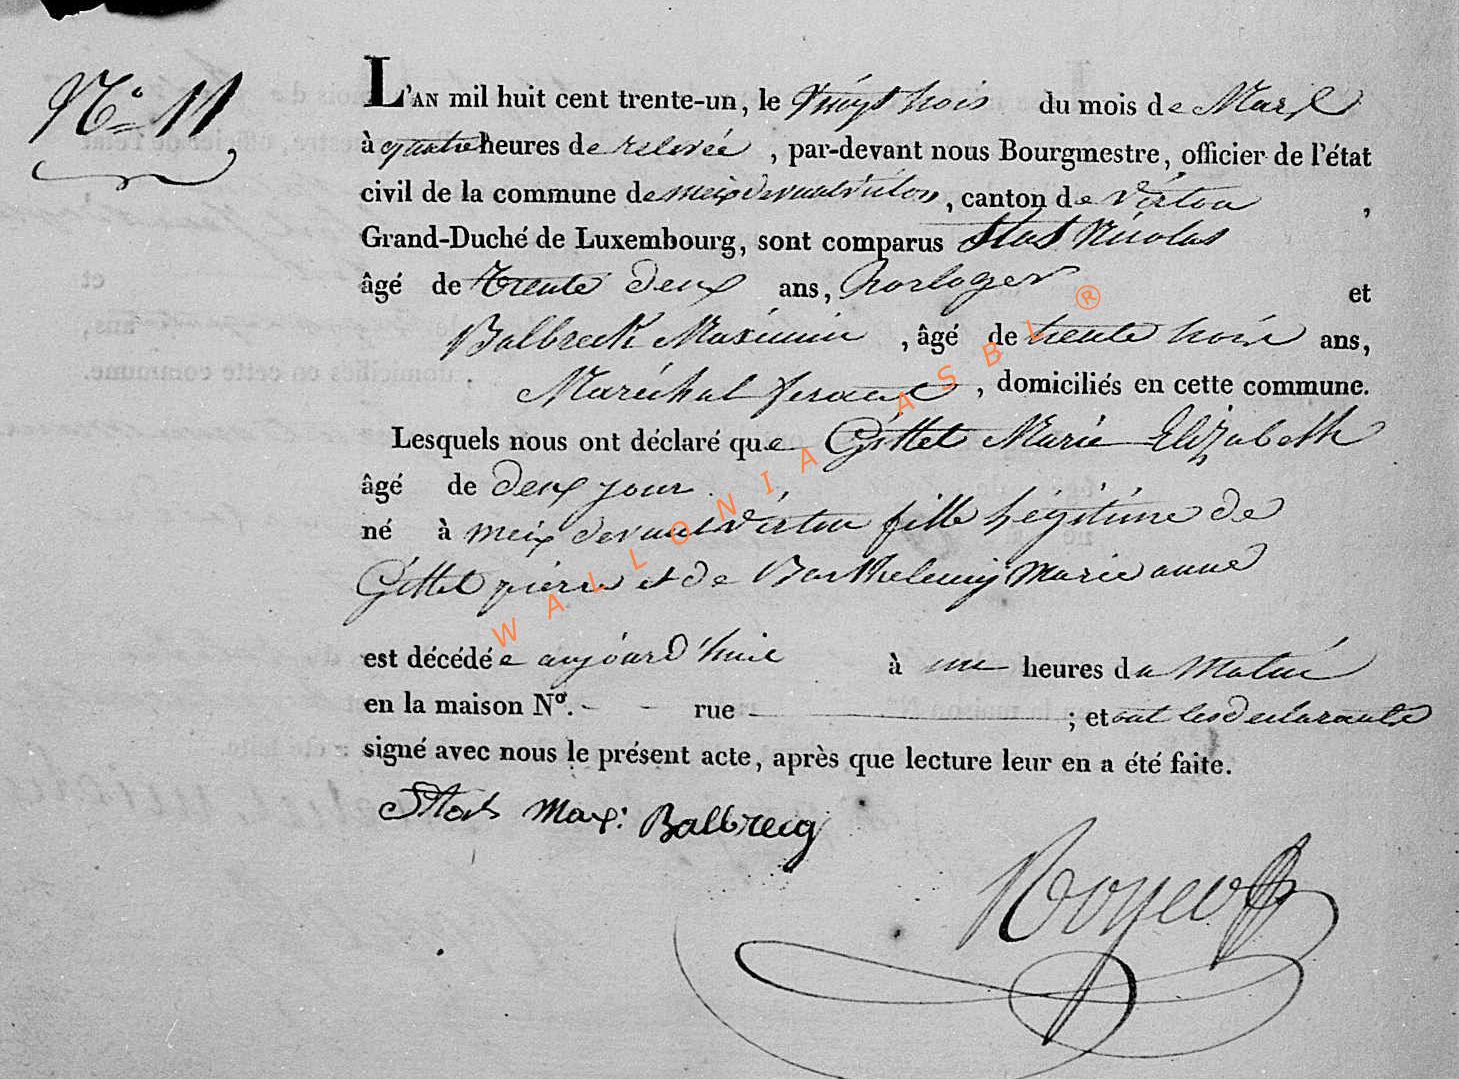 N.° 11.
L'AN mil huit cent trente-un, le Vingt trois du mois de Mars
à quatre heures de relevée, par-devant nous Bourgmestre, officier de l'état
civil de la commune de meix devant virton, canton de Virton,
Grand-Duché de Luxembourg, sont comparus Stas Nicolas
âgé de trente deux ans, horloger et
Balbreck Maximin, âgé de trente trois ans,
Maréchal ferant, domiciliés en cette commune.
Lesquels nous ont déclaré que Gittet Marie Elizabeth
âgé de deux jour
né à meix devant virton fille légitime de
Gittet pierre et de Barthelemy Marie anne
est décédée aujourd'huie à une heures du Matin
en la maison N°. - - rue - ; et ont les declarants
signé avec nous le présent acte, après que lecture leur en a été faite.
Stas Max: Balbrecq
WALLONIA ASBL ®